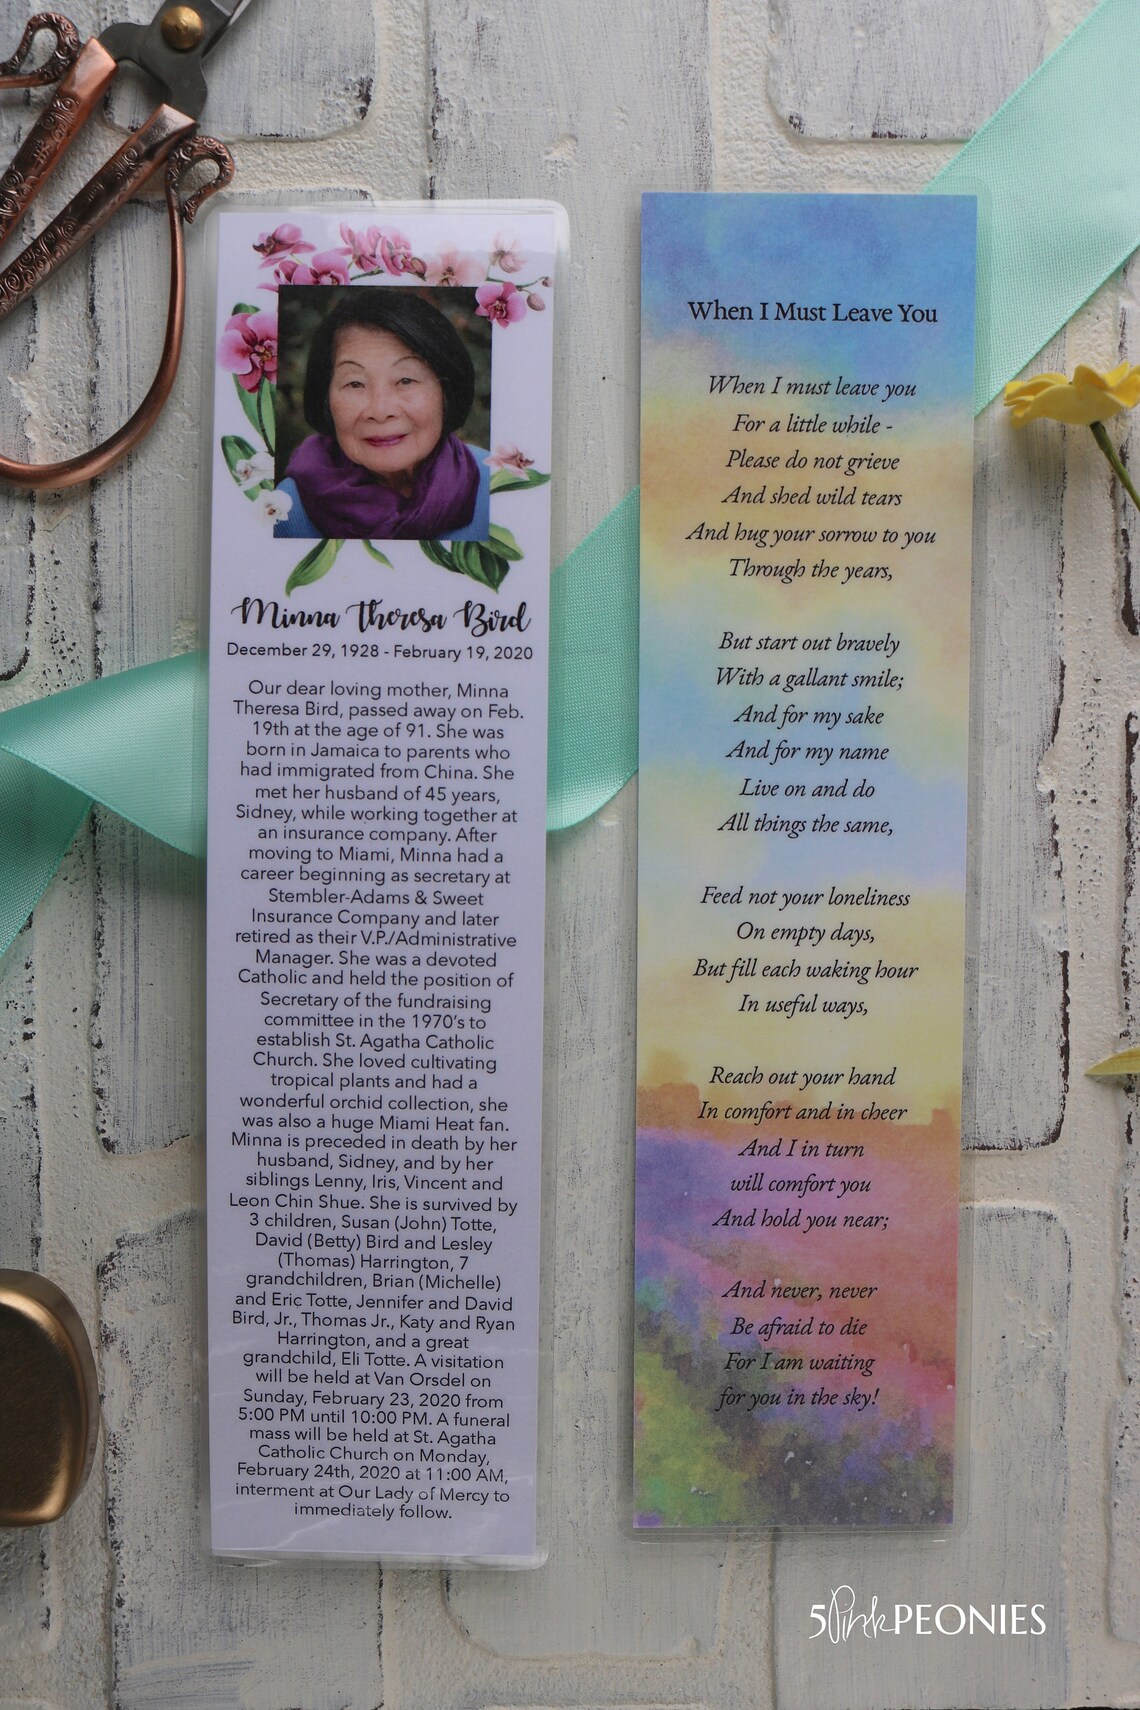 Minna Theresa Bird
December 29, 1928 - February 19, 2020
Our dear loving mother, Minna
Theresa Bird, passed away on Feb.
19th at the age of 91. She was
born in Jamaica to parents who
had immigrated from China. She
met her husband of 45 years,
Sidney, while working together at
an insurance company. After
moving to Miami, Minna had a
career beginning as secretary at
Stembler-Adams & Sweet
Insurance Company and later
retired as their V.P./Administrative
Manager. She was a devoted
Catholic and held the position of
Secretary of the fundraising
committee in the 1970's to
establish St. Agatha Catholic
Church. She loved cultivating
tropical plants and had a
wonderful orchid collection, she
was also a huge Miami Heat fan.
Minna is preceded in death by her
husband, Sidney, and by her
siblings Lenny, Iris, Vincent and
Leon Chin Shue. She is survived by
3 children, Susan (John) Totte,
David (Betty) Bird and Lesley
(Thomas) Harrington, 7
grandchildren, Brian (Michelle)
and Eric Totte, Jennifer and David
Bird, Jr., Thomas Jr., Katy and Ryan
Harrington, and a great
grandchild, Eli Totte. A visitation
will be held at Van Orsdel on
Sunday, February 23, 2020 from
5:00 PM until 10:00 PM. A funeral
mass will be held at St. Agatha
Catholic Church on Monday,
February 24th, 2020 at 11:00 AM,
interment at Our Lady of Mercy to
immediately follow.
When I Must Leave You
When I must leave you
For a little while -
Please do not grieve
And shed wild tears
And hug your sorrow to you
Through the years,
But start out bravely
With a gallant smile;
And for my sake
And for my name
Live on and do
All things the same,
Feed not your loneliness
On empty days,
But fill each waking hour
In useful ways,
Reach out your hand
In comfort and in cheer
And I in turn
will comfort you
And hold you near;
And never, never
Be afraid to die
For I am waiting
for you in the sky!
5 Pink PEONIES